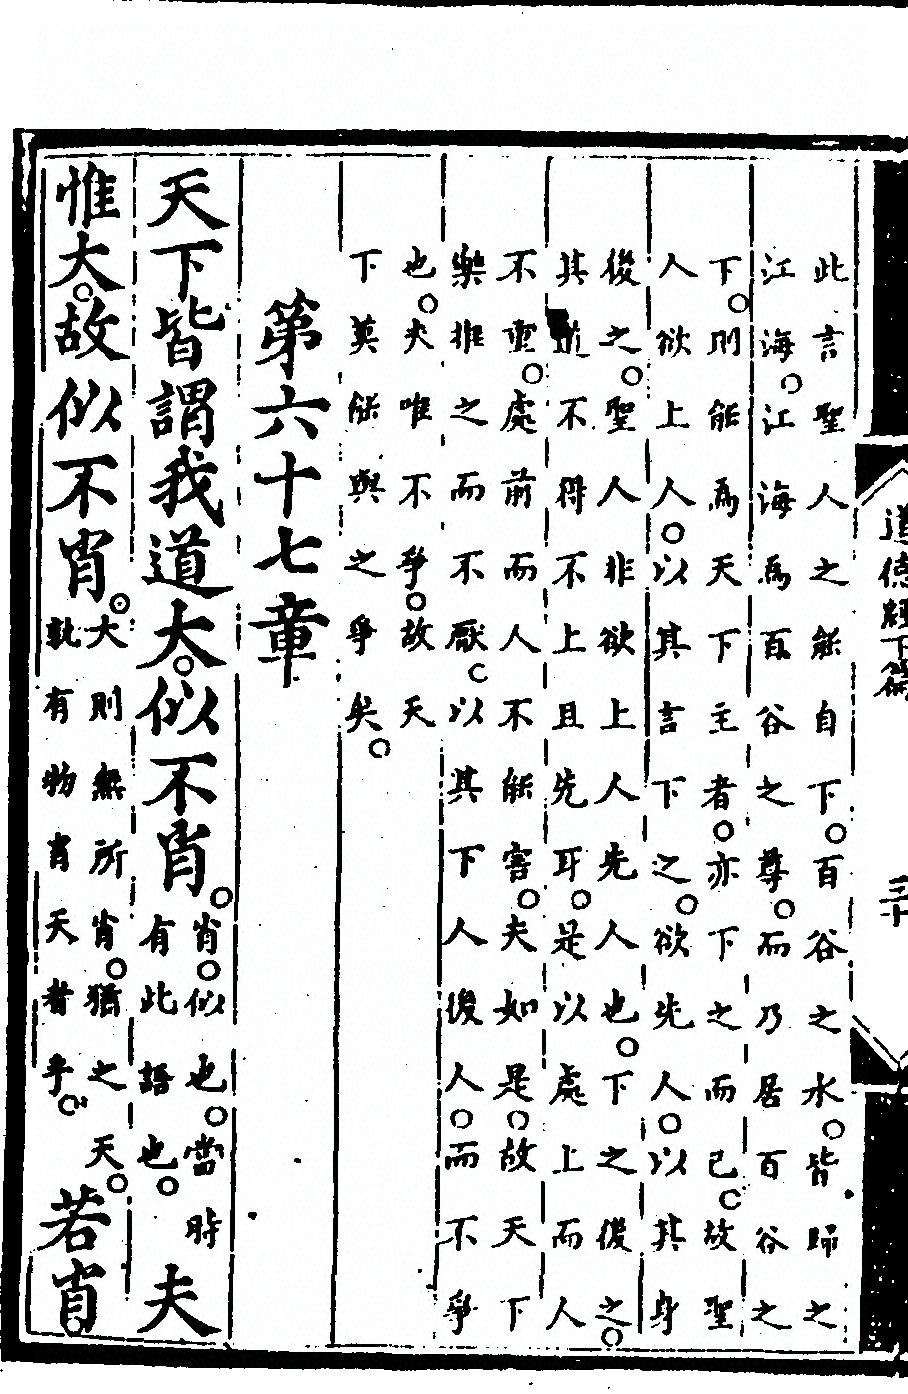 道德經下篇
三十
此言聖人之能自下。百谷之水。皆歸之
江海。江海為百谷之尊。而乃居百谷之
下。則能為天下主者。亦下之而已。故聖
人欲上人。以其言下之。欲先人。以其身
後之。聖人非欲上人先人也。下之後之。
其道不得不上且先耳。是以處上而人
不重。處前而人不能害。夫如是。故天下
樂推之而不厭。以其下人後人。而不爭
也。夫唯不爭。故天
下莫能與之爭矣。
第六十七章
天下皆謂我道大。似不肖。肖。似也。當時有此語也。夫
惟大。故似不肖。大則無所肖。猶之天。孰有物肖天者乎。若肖